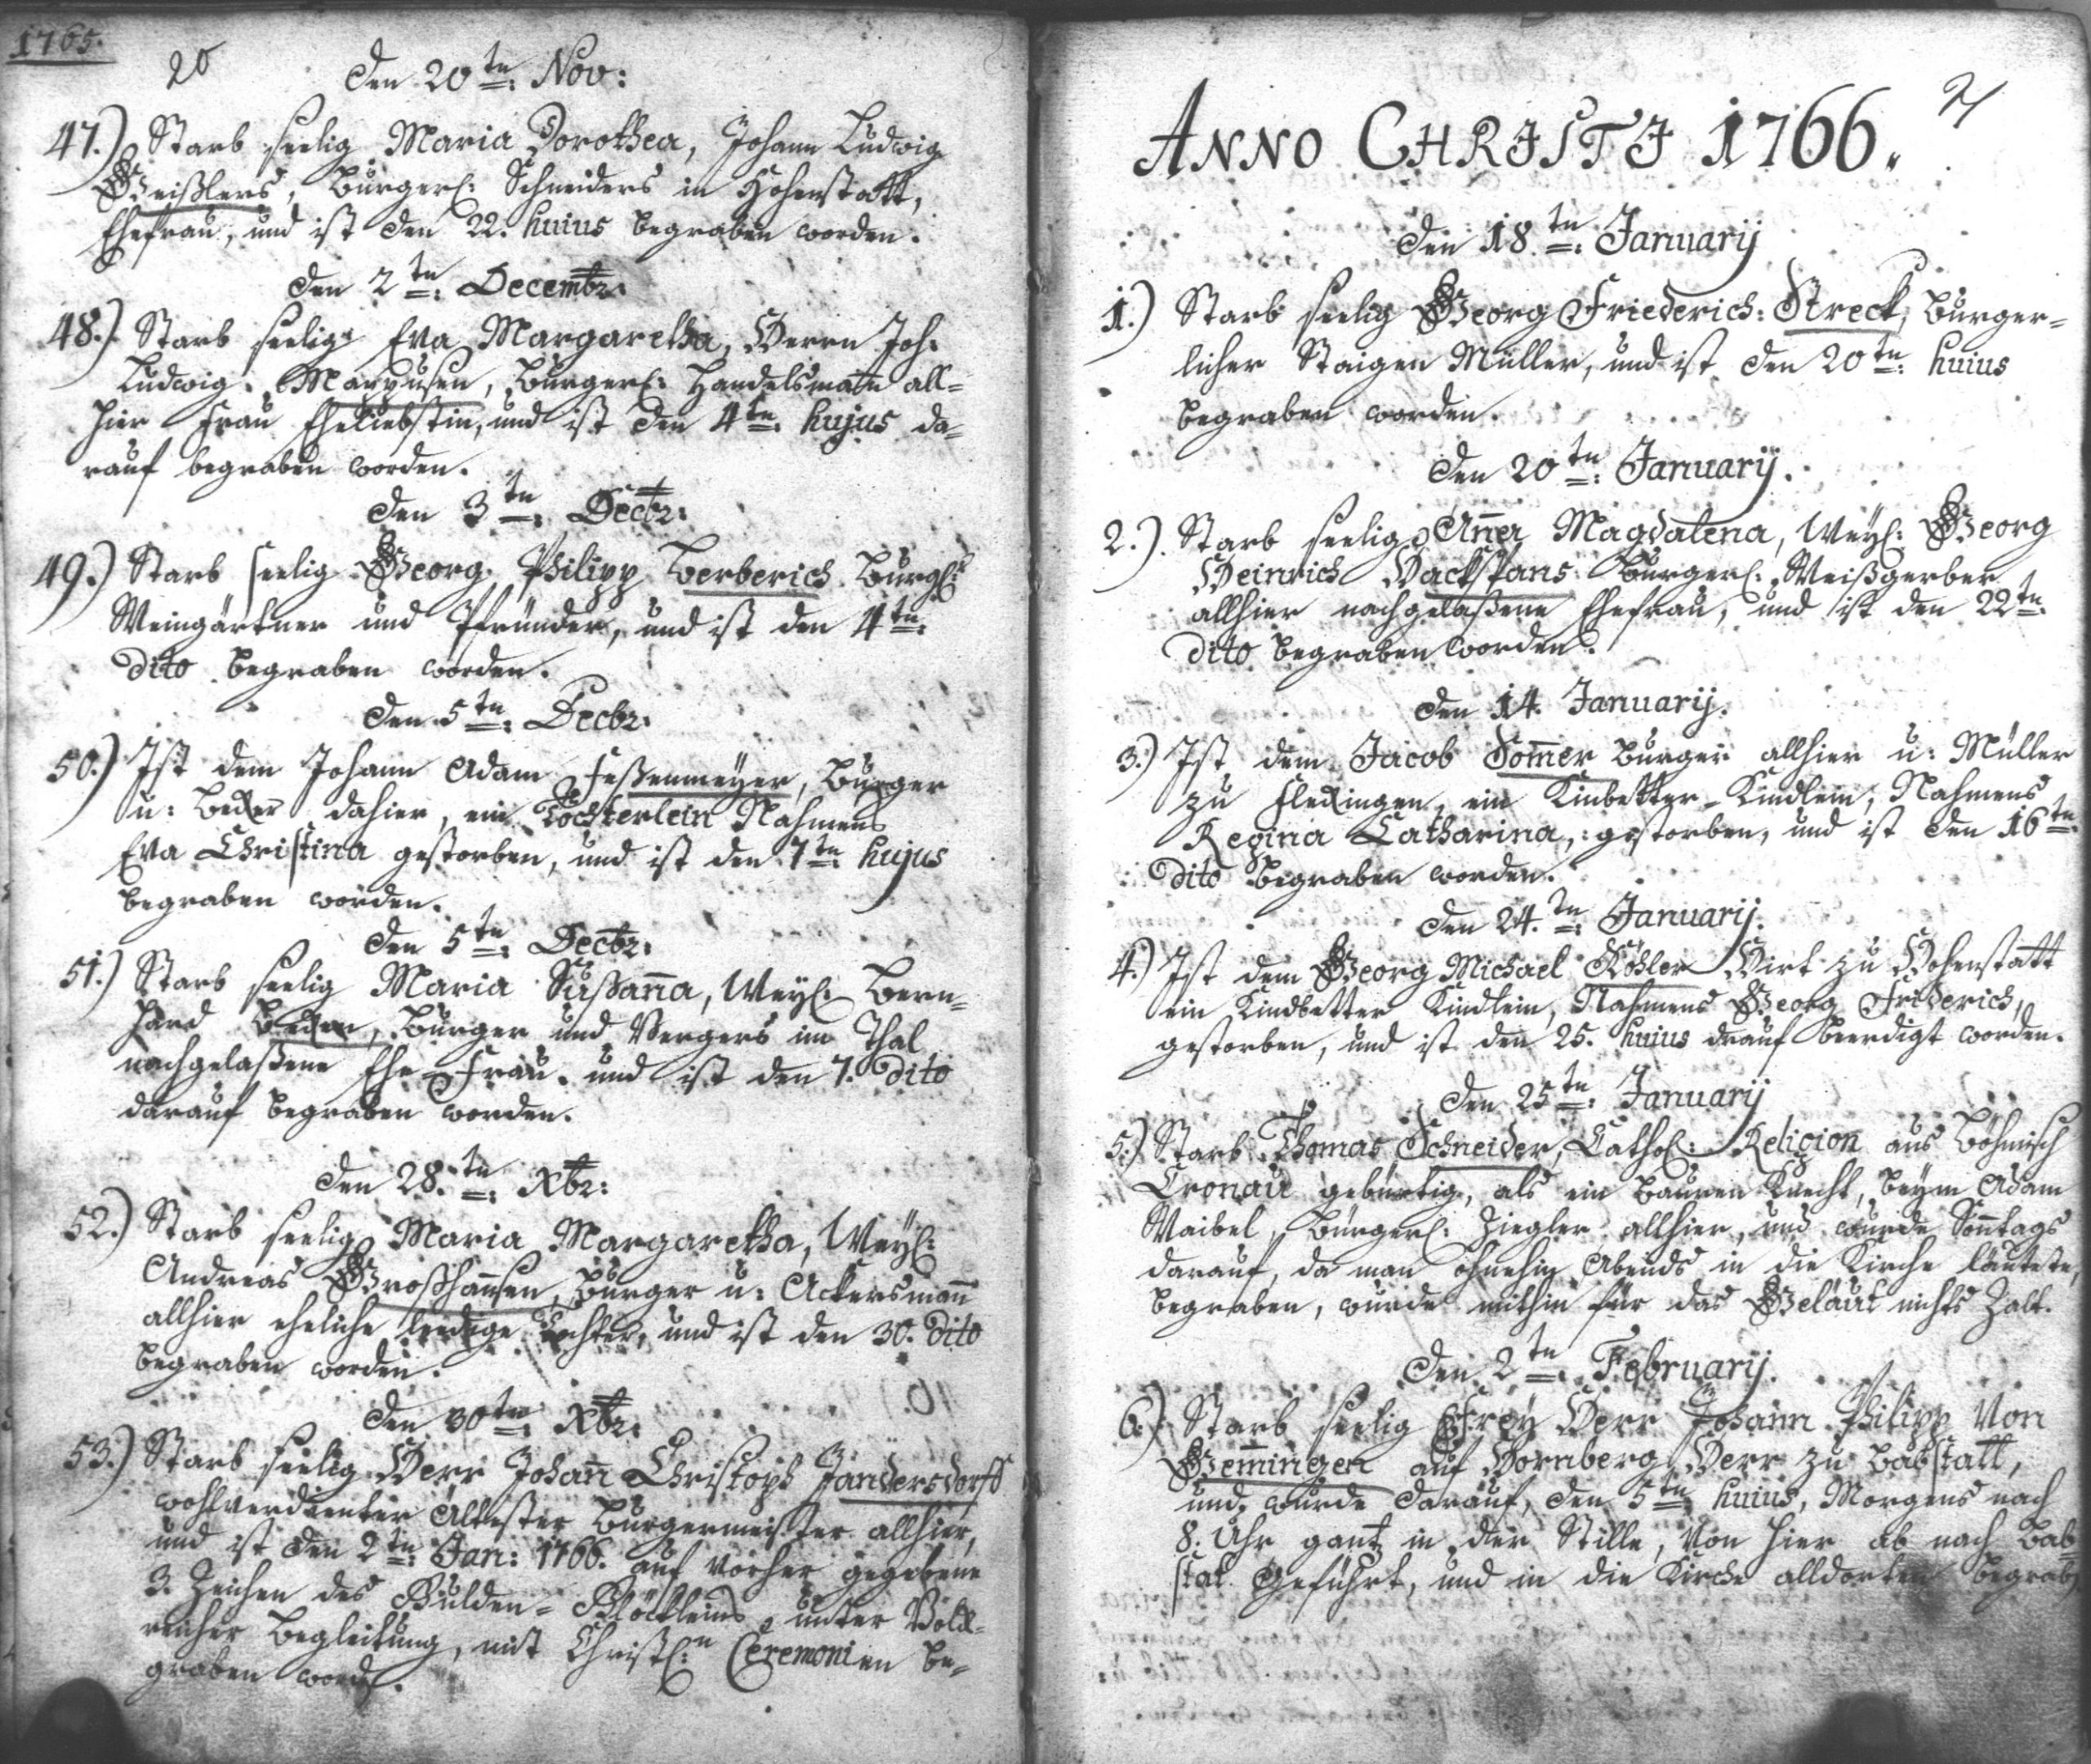 1765.
20
Den 20tn: Nov:
47.) Starb seelig Maria Dorothea, Johann Ludwig
Geißlers, Burgerl: Schneiders in Hohenstatt,
Ehefrau, und ist den 22. huius begraben worden.
Den 2tn: Decembr:
48.) Starb seelig Eva Margaretha, Herrn Joh:
Ludwig Mappusen, Burgerl: Handelsmañ all=
hier Frau Eheliebstin, und ist den 4tn: hujus da=
rauf begraben worden.
Den 3tn: Decbr:
49.) Starb seelig Georg Philipp Berberich Burgl:
Weingärtner und Pfründer, und ist den 4tn:
dito begraben worden.
Den 5tn: Decbr:
50.) Ist dem Johann Adam Feßenmeyer, Burger
u: Becker dahier, ein Töchterlein Nahmens
Eva Christina gestorben, und ist den 7tn: hujus
begraben worden.
Den 5tn: Decbr:
51.) Starb seelig Maria Sußaña, Weyl: Bern=
hard, Burger und Vergers im Thal
nachgelaßene Ehe=Frau, und ist den 7. dito
darauf begraben worden.
Den 28.tn: Xbr:
52.) Starb seelig Maria Margaretha, Weyl:
Andreas Großhansen, Burger u: Ackersmañ
allhier eheliche ledige Tochter, und ist den 30. dito
begraben worden.
Den 30tn: Xbr:
53.) Starb seelig Herr Johañ Christoph Jandersdorff
wohlverdienter Ältester Burgermeister allhier,
und ist den 2tn: Jan: 1766. auf vorher gegebene
3. Zeichen des Gulden=Glöckleins, unter Volck=
reicher Begleitung, mit Christl:n Ceremonien be=
graben word.
21
ANNO CHRISTI 1766.
Den 18.tn: Januarij
1.) Starb seelig Georg Friederich: Streck, Burger=
licher Staigen Müller, und ist den 20tn: huius
begraben worden.
Den 20tn: Januarij.
2.) Starb seelig Añer Magdalena, Weyl: Georg
Heinrich Hackspans Burgerl: Weißgerber
allhier nachgelaßene Ehefrau, und ist den 22tn:
dito begraben worden.
Den 14. Januarij.
3.) Ist dem Jacob Som̄er Burger allhier u: Müller
zu Fleckingen, ein Kinbetter=Kindlein, Nahmens
Regina Catharina, gestorben, und ist den 16tn:
dito begraben worden.
Den 24.tn: Januarij.
4.) Ist dem Georg Michael Köhler Wirt zu Hohenstatt
ein Kindbetter Kindlein, Nahmens Georg Friderich,
gestorben, und ist den 25. huius drauf beerdigt worden.
Den 25tn: Januarij
5.) Starb Thomas Schneider, Cathol: Religion aus Böhmisch
Cronau gebürtig, als ein Bauren Knecht, beym Adam
Waibel, Bürgerl: Ziegler allhier, und wurde Soñtags
darauf, da man ohnehin Abends in die Kirche läutete,
begraben, wurde mithin für das Geläut nichts Zalt.
Den 2tn: Februarij.
6.) Starb seelig Frey Herr Johann Philipp Von
Gem̄ingen auf Hornberg Herr zu Babstatt,
und wurde darauf, den 5tn: huius, Morgens nach
8. Uhr gantz in der Stille, Von hier ab nach Bab=
stat Geführt, und in die Kirche alldorten begrab